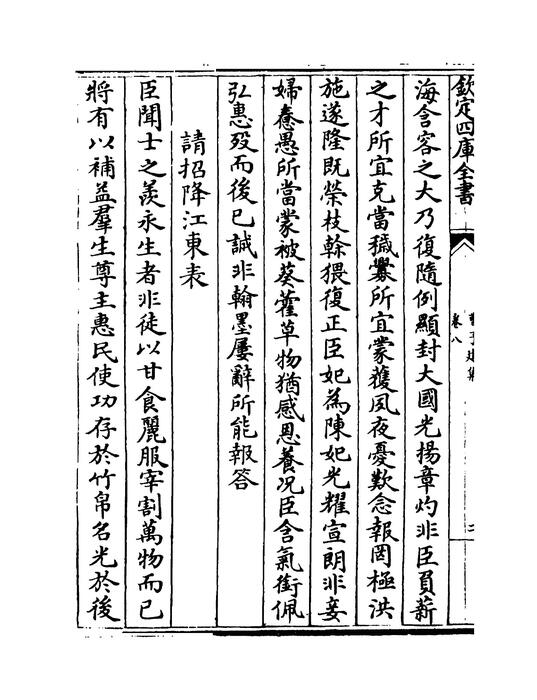 欽定四庫全書
卷八
海含容之大乃復隨例顯封大國光揚章灼非臣負薪
之才所宜克當穢釁所宜蒙獲夙夜憂歎念報罔極洪
施遂隆既榮枝幹猥復正臣妃為陳妃光耀宣朗非妾
婦惷愚所當蒙被葵藿草物猶感恩養况臣含氣銜佩
弘惠殁而後已誠非翰墨屢辭所能報答
請招降江東表
臣聞士之羨永生者非徒以甘食麗服宰割萬物而已
將有以補益羣生尊主惠民使功存於竹帛名光於後